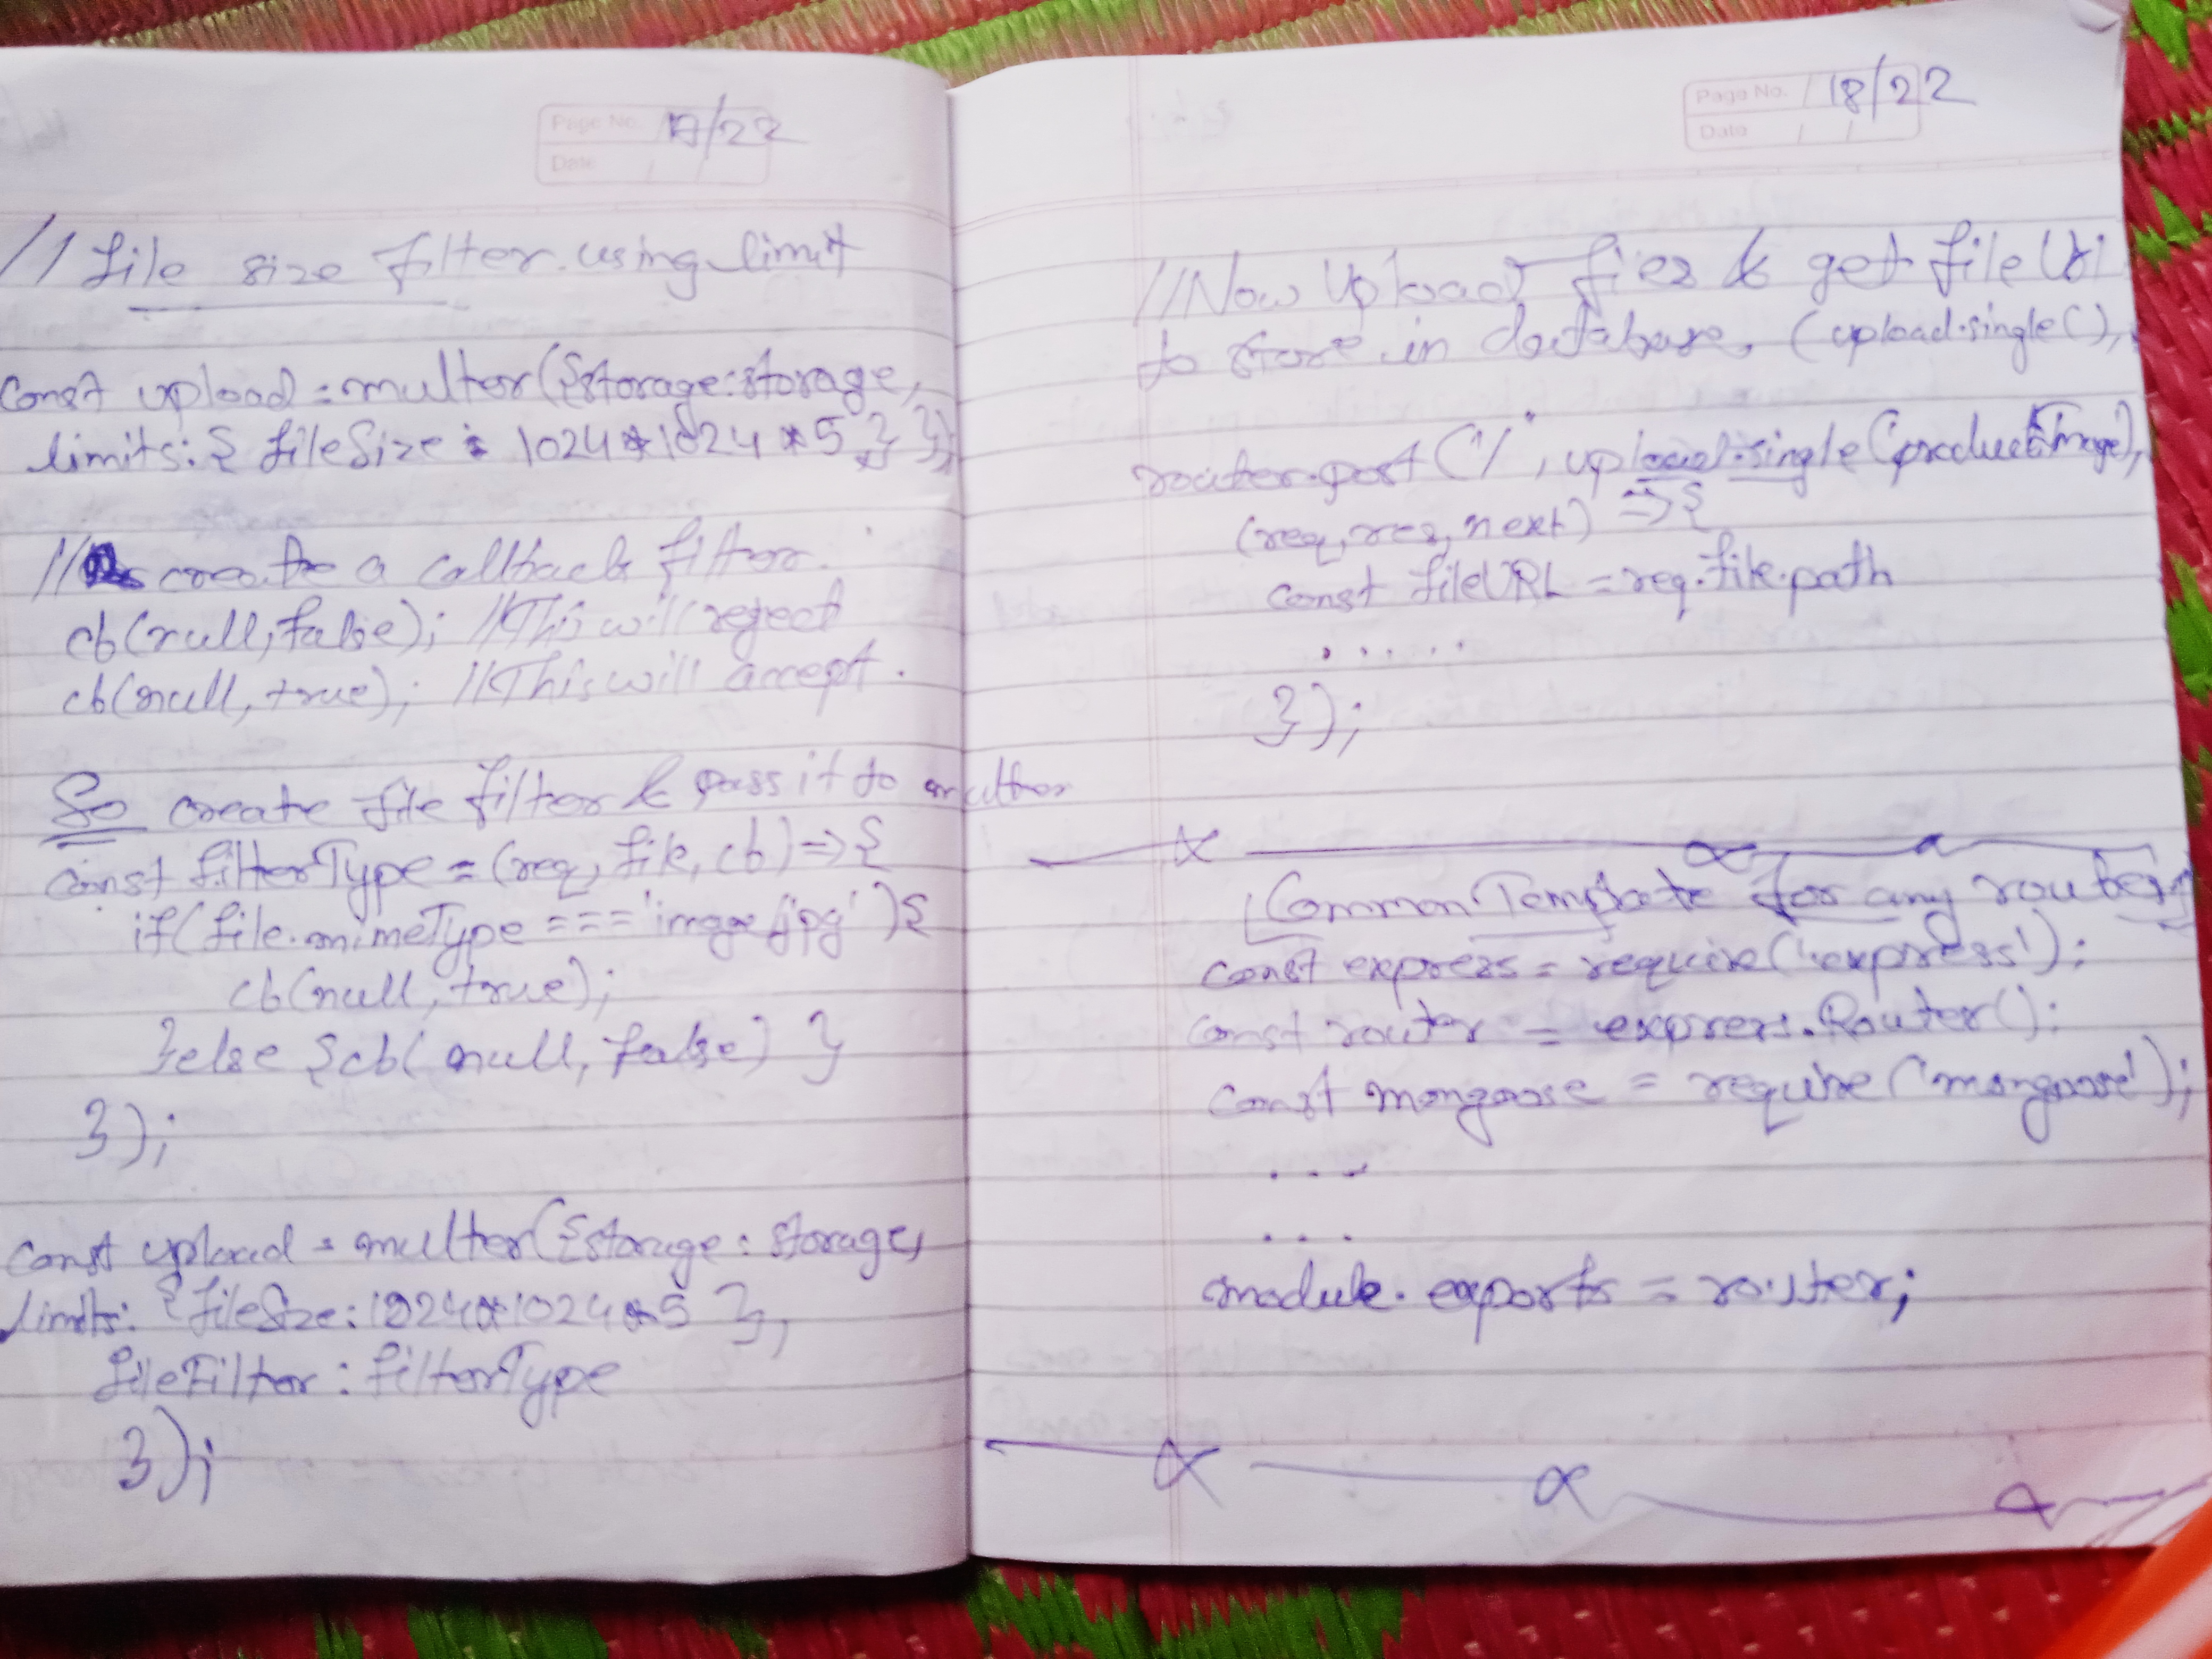 Page No. 17/22
Date / /
// file size filter using limit
const upload = multer({storage:storage,
limits: { fileSize : 1024*1024*5 } });
// create a callback filter.
cb(null, false); //This will reject
cb(null, true); //This will accept.
So create file filter & pass it to multer
const filterType = (req, file, cb) => {
if(file.mimeType === 'image/jpg'){
cb(null, true);
}else {cb( null, false) }
});
const upload = multer({storage: storage,
limits: {fileSize: 1024*1024*5 },
fileFilter: filterType
});
Page No. 18/22
Date / /
//Now Upload files & get file Uri
to store in database, (upload.single(),
router.post('/', upload.single('productImage'),
(req, res, next) => {
const fileURL = req.file.path
. . . . .
});
Common Template for any router
const express = require('express');
const router = express.Router();
const mongoose = require('mongoose');
. . .
. . .
module.exports = router;